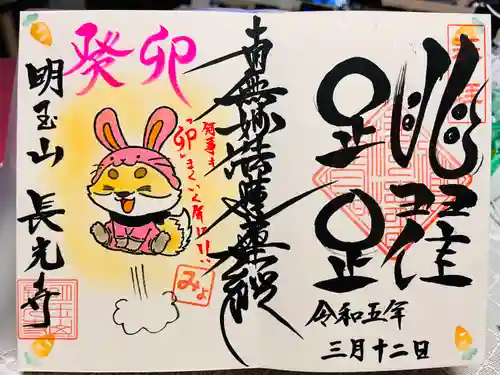 跳躍
令和五年
三月十二日
南無妙法蓮華経
癸卯
何事も
「卯」まくいく様に!!
みよ
明玉山 長光寺